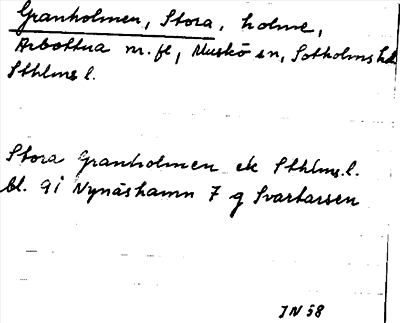 Granholmen, Stora, holme,
Arbottna m. fl, Muskö sn, Sotholms hd
Sthlms l.
Stora Granholmen ek Sthlms. l.
bl. 9i Nynäshamn 7 g Svartarsen
JN 58